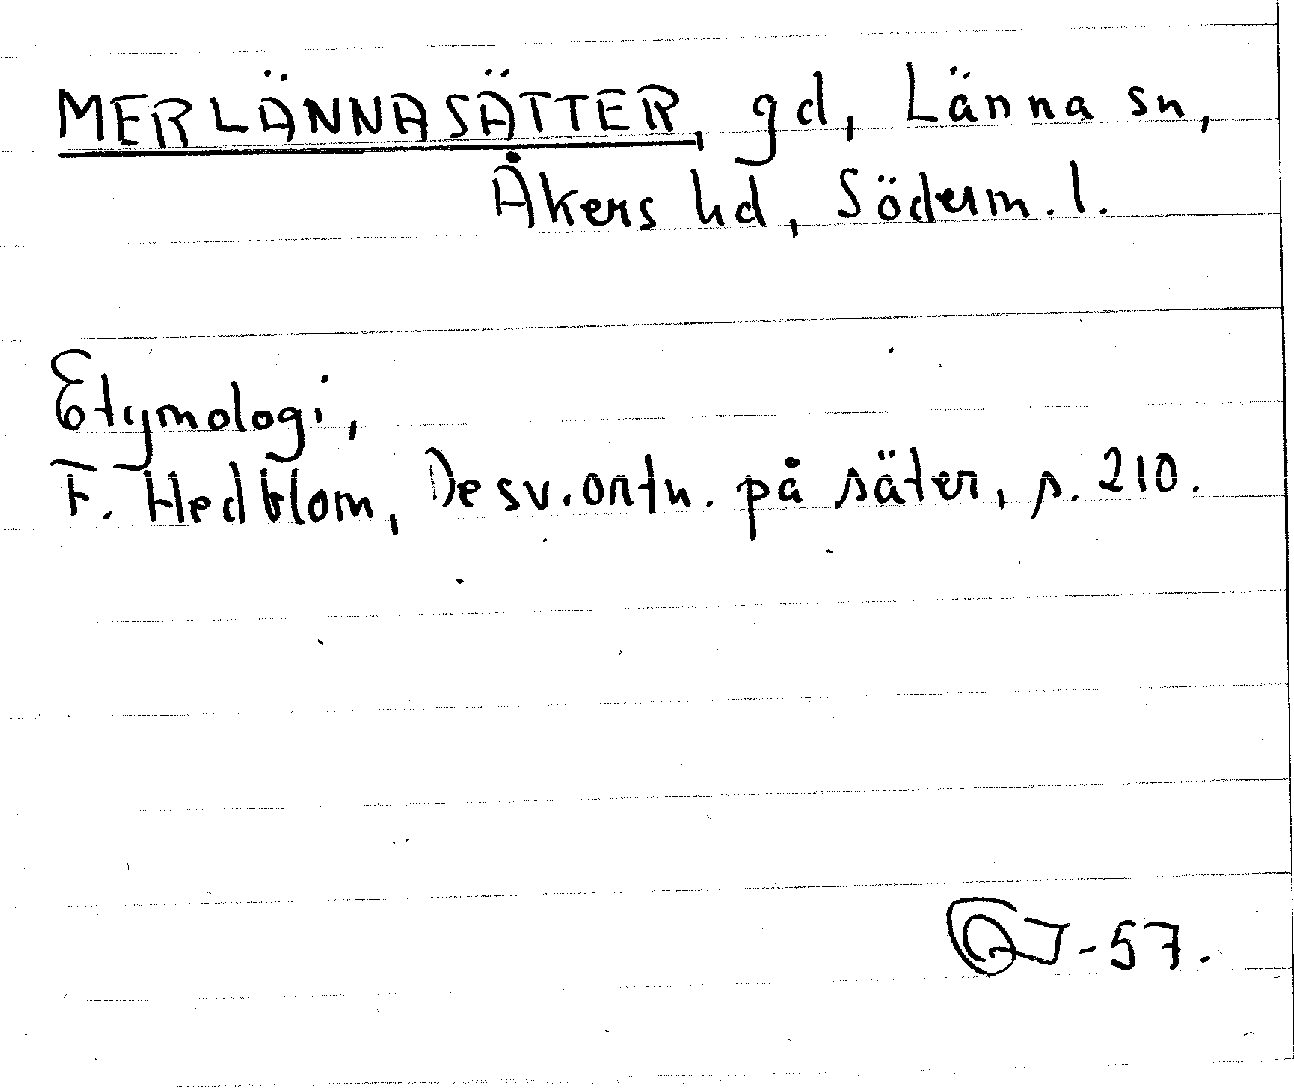 MERLÄNNASÄTTER, gd, Länna sn,
Åkers hd, Söderm. l.
Etymologi,
F. Hedblom, De sv. ortn. på säter, s. 210.
-57.